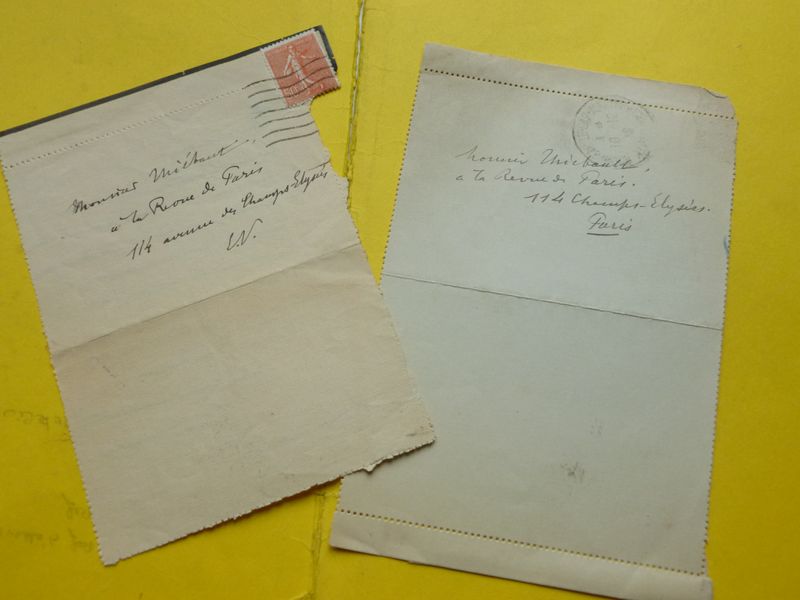 Monsieur Thiébaut,
à la Revue de Paris
114 avenue des Champs-Elysées
E.V.
50c
Monsieur Thiebault,
à la Revue de Paris.
114 Champs-Elysées.
Paris